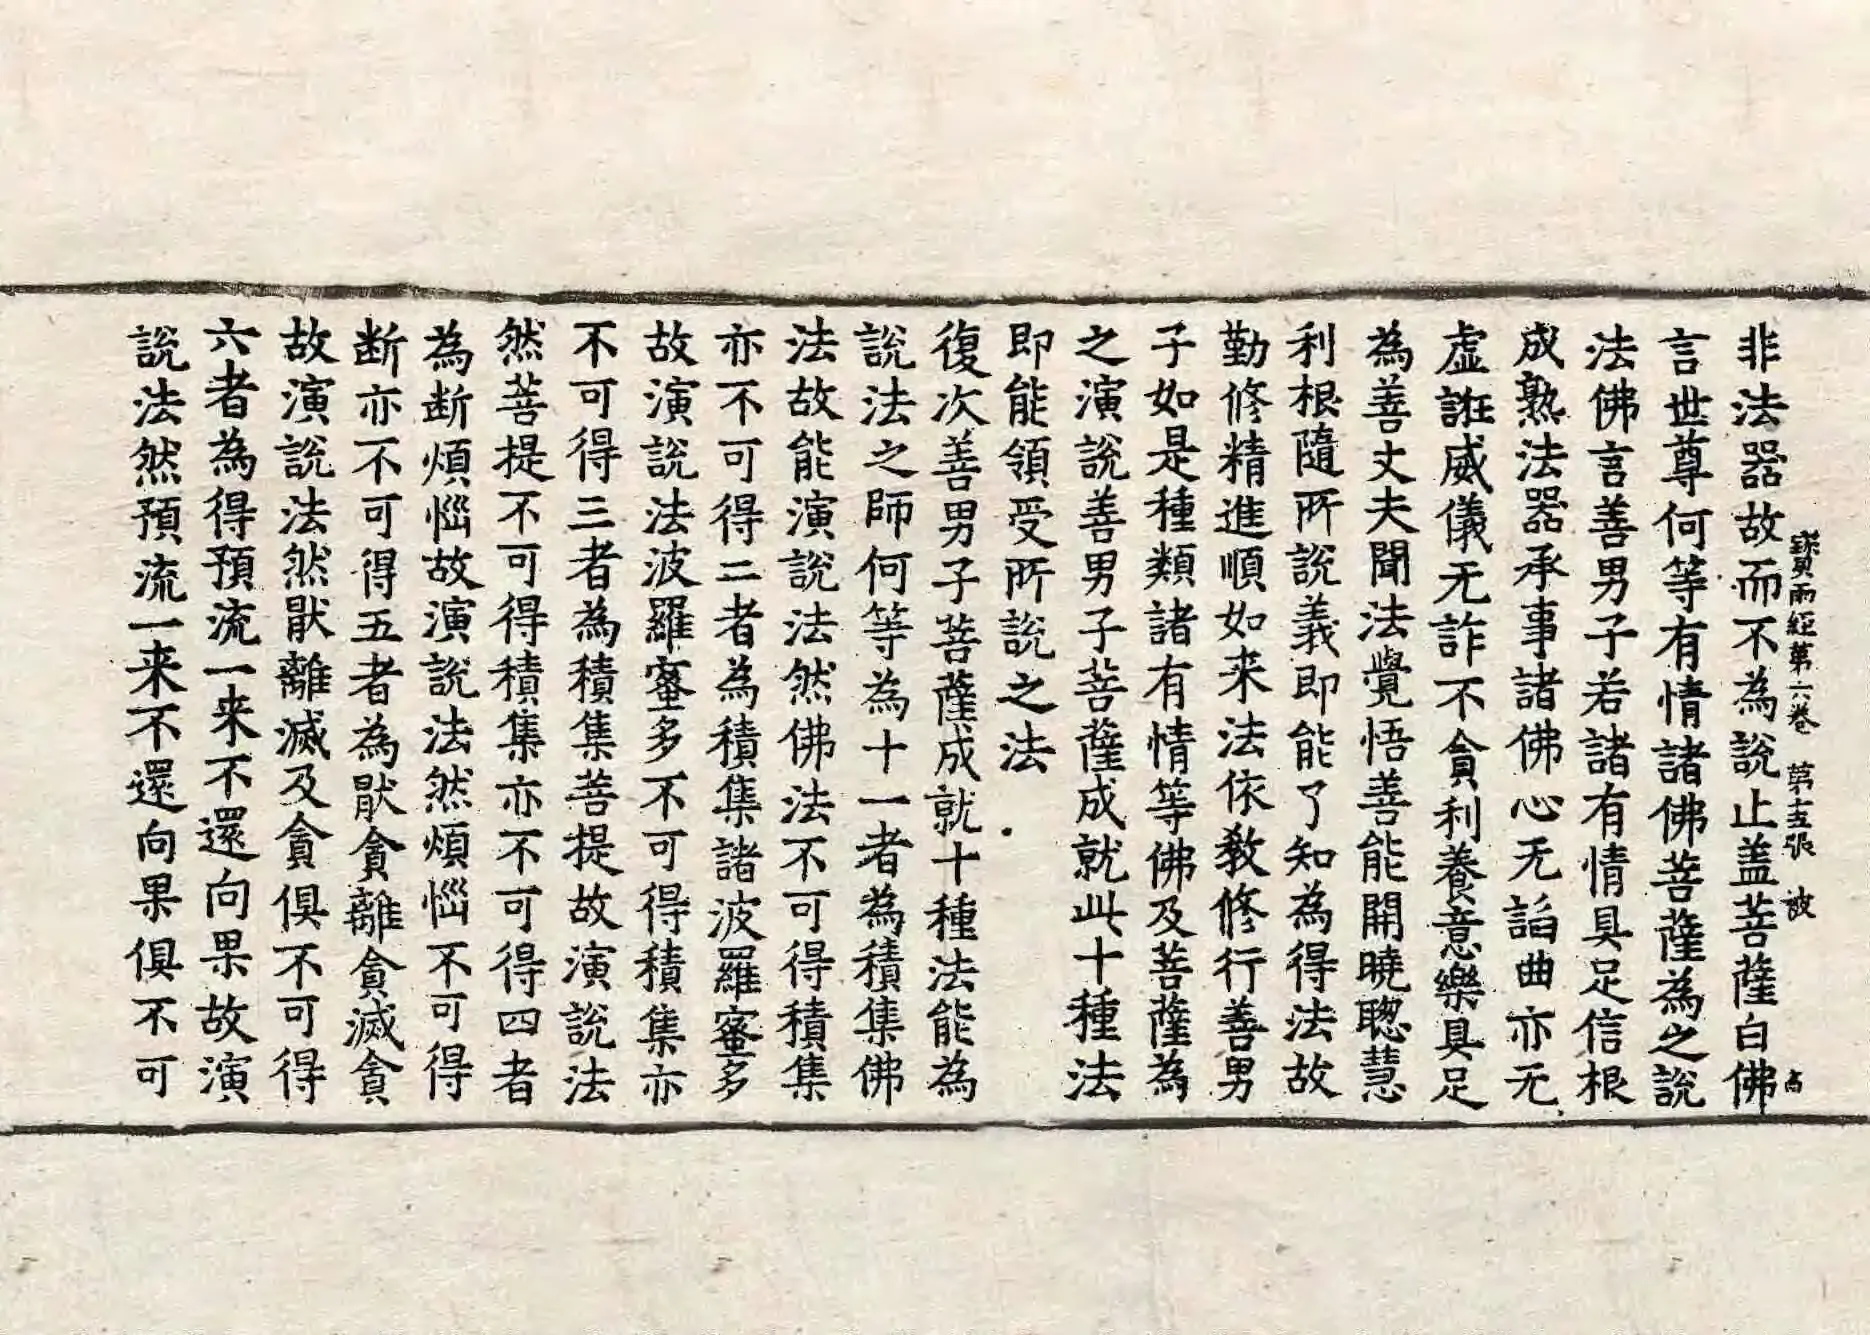 寳雨經第六卷 第十五張 被
非法器故而不為說止盖菩薩白佛
言世尊何等有情諸佛菩薩為之說
法佛言善男子若諸有情具足信根
成熟法器承事諸佛心无諂曲亦无
虛誑威儀无詐不貪利養意樂具足
為善丈夫聞法覺悟善能開曉聦慧
利根隨所說義即能了知為得法故
勤修精進順如来法依教修行善男
子如是種類諸有情等佛及菩薩為
之演說善男子菩薩成就此十種法
即能領受所說之法
復次善男子菩薩成就十種法能為
說法之師何等為十一者為積集佛
法故能演說法然佛法不可得積集
亦不可得二者為積集諸波羅蜜多
故演說法波羅蜜多不可得積集亦
不可得三者為積集菩提故演說法
然菩提不可得積集亦不可得四者
為断煩惱故演說法然煩惱不可得
断亦不可得五者為猒貪離貪滅貪
故演說法然猒離滅及貪俱不可得
六者為得預流一来不還向果故演
說法然預流一来不還向果俱不可